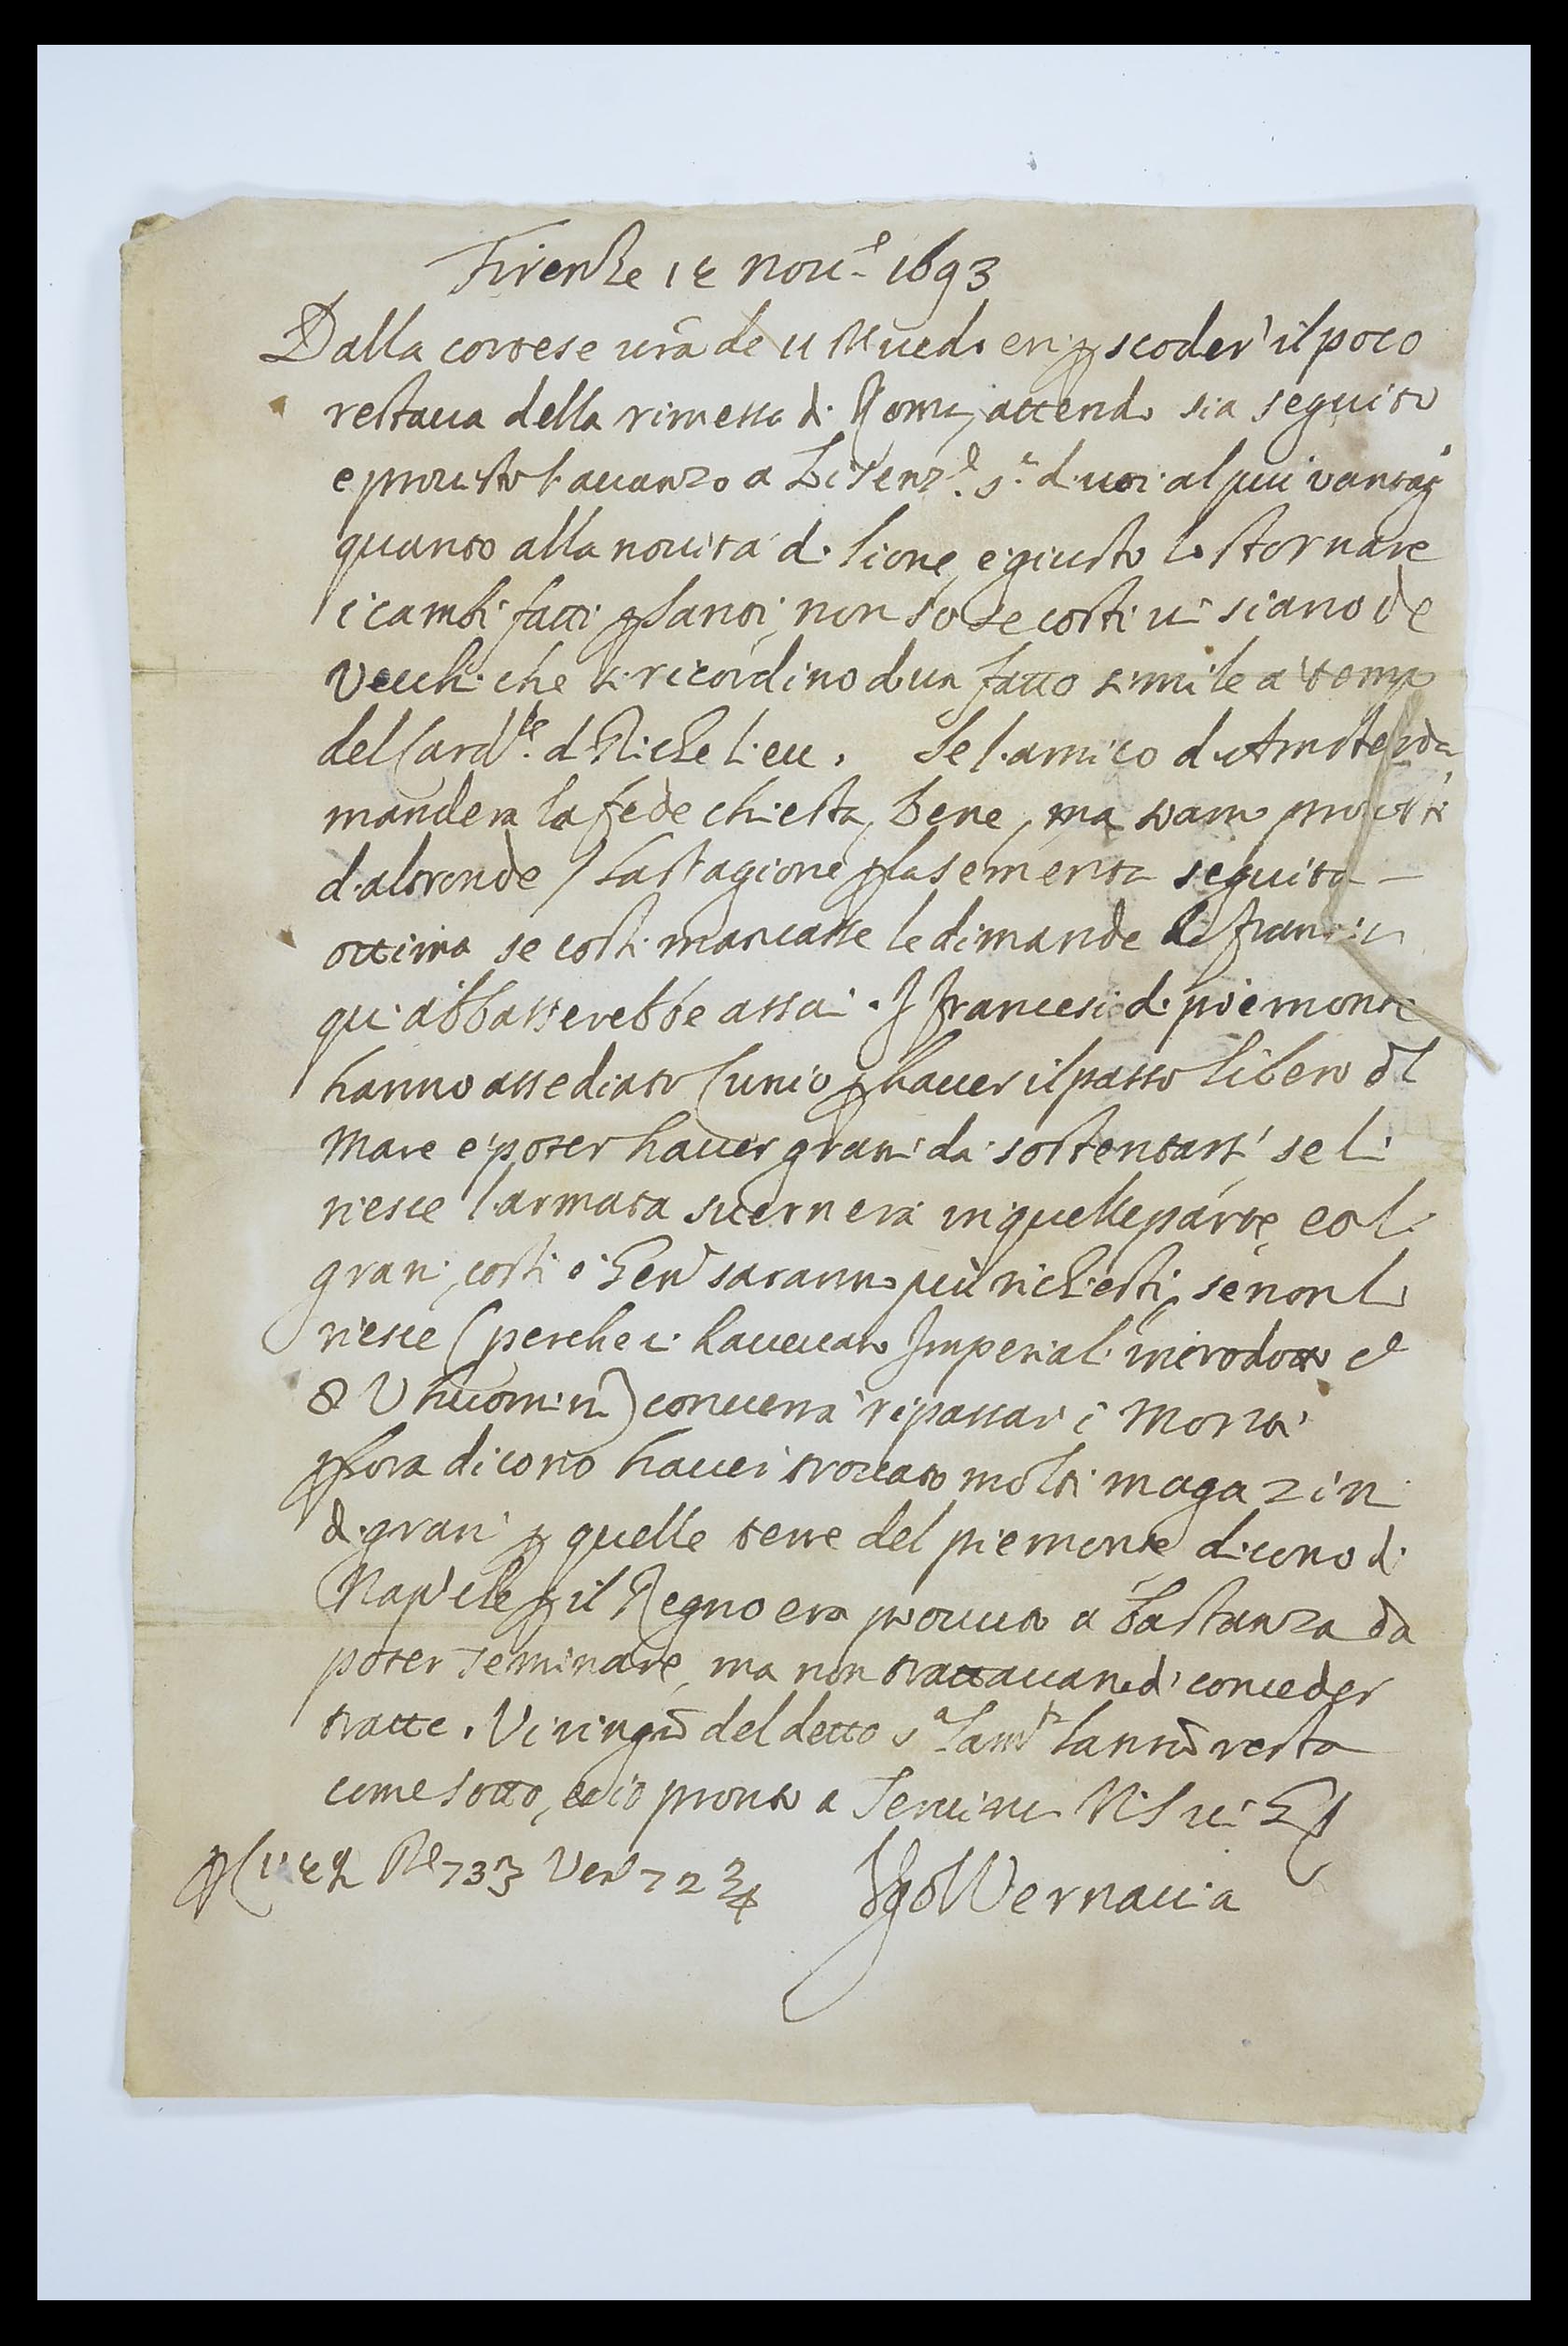 Firenze 14 Nov.e 1693
Dalla cortese vra de 11 vedo eri p scoder il poco
restaua della rimessa di Roma, attendo sia seguito
e prouisto l'auanzo a Bisenz.e s.r di uoi al piu vantag
quanto alla nouita di Lione, e giusto lo stornare
i cambi fatti p Santi, non so se costi ui siano de
Vecchi che si ricordino d'un fatto simile a temp
del Card.le di Richelieu. Se l'amico d'Amsterda
mandera la fede chiesta, bene, ma siamo prouisti
d'altronde / La stagione p la sementa seguita
ottima se costi mancasse le dimande di francia
qui abbasserebbe assai. I francesi di piemonte
hanno assediato Cunio p hauer il passo libero dl
Mare e poter hauer grani da sostentarsi se li
riesce l'armata suernera in quelle parte, et l
grani, costi e Gen saranno più richiesti, se non li
riesce (perche i haueuano Imperiali introdotto
8 U huomini) conuerrà ripassar i Monti
p hora dicono hauer trouato molti magazin
di grani p quelle terre del piemonte dicono di
Nap che p il Regno era prouisto a bastanza da
poter seminare, ma non trattauano di conceder
tratte. Vi ringro del detto s.a Lam Lanno resta
come sotto, et io pronto a Seruirui N S ui
73 Ven 72 3/4 Ugo Vernaccia